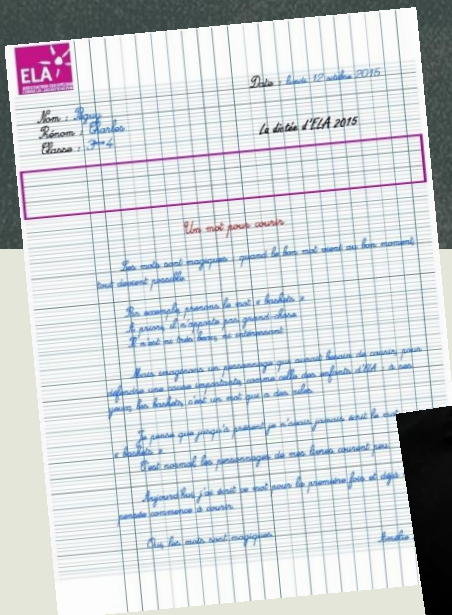 ELA
Date : lundi 12 octobre 2015
Nom : Péguy
Prénom : Charles
Classe : 3ème 4
La dictée d'ELA 2015
Un mot pour courir
Les mots sont magiques : quand le bon mot vient au bon moment,
tout devient possible.
Par exemple, prenons le mot « baskets. »
A priori, il n'apporte pas grand-chose.
Il n'est ni très beau, ni intéressant.
Mais imaginons un personnage qui aurait besoin de courir, pour
défendre une cause importante, comme celle des enfants d'ELA : à ses
yeux, les baskets, c'est un mot qui a des ailes.
Je pense que jusqu'à présent je n'avais jamais écrit le mot
« baskets. »
C'est normal, les personnages de mes livres courent peu.
Aujourd'hui, j'ai écrit ce mot pour la première fois et déjà
pensée commence à courir.
Oui, les mots sont magiques.
Amélie